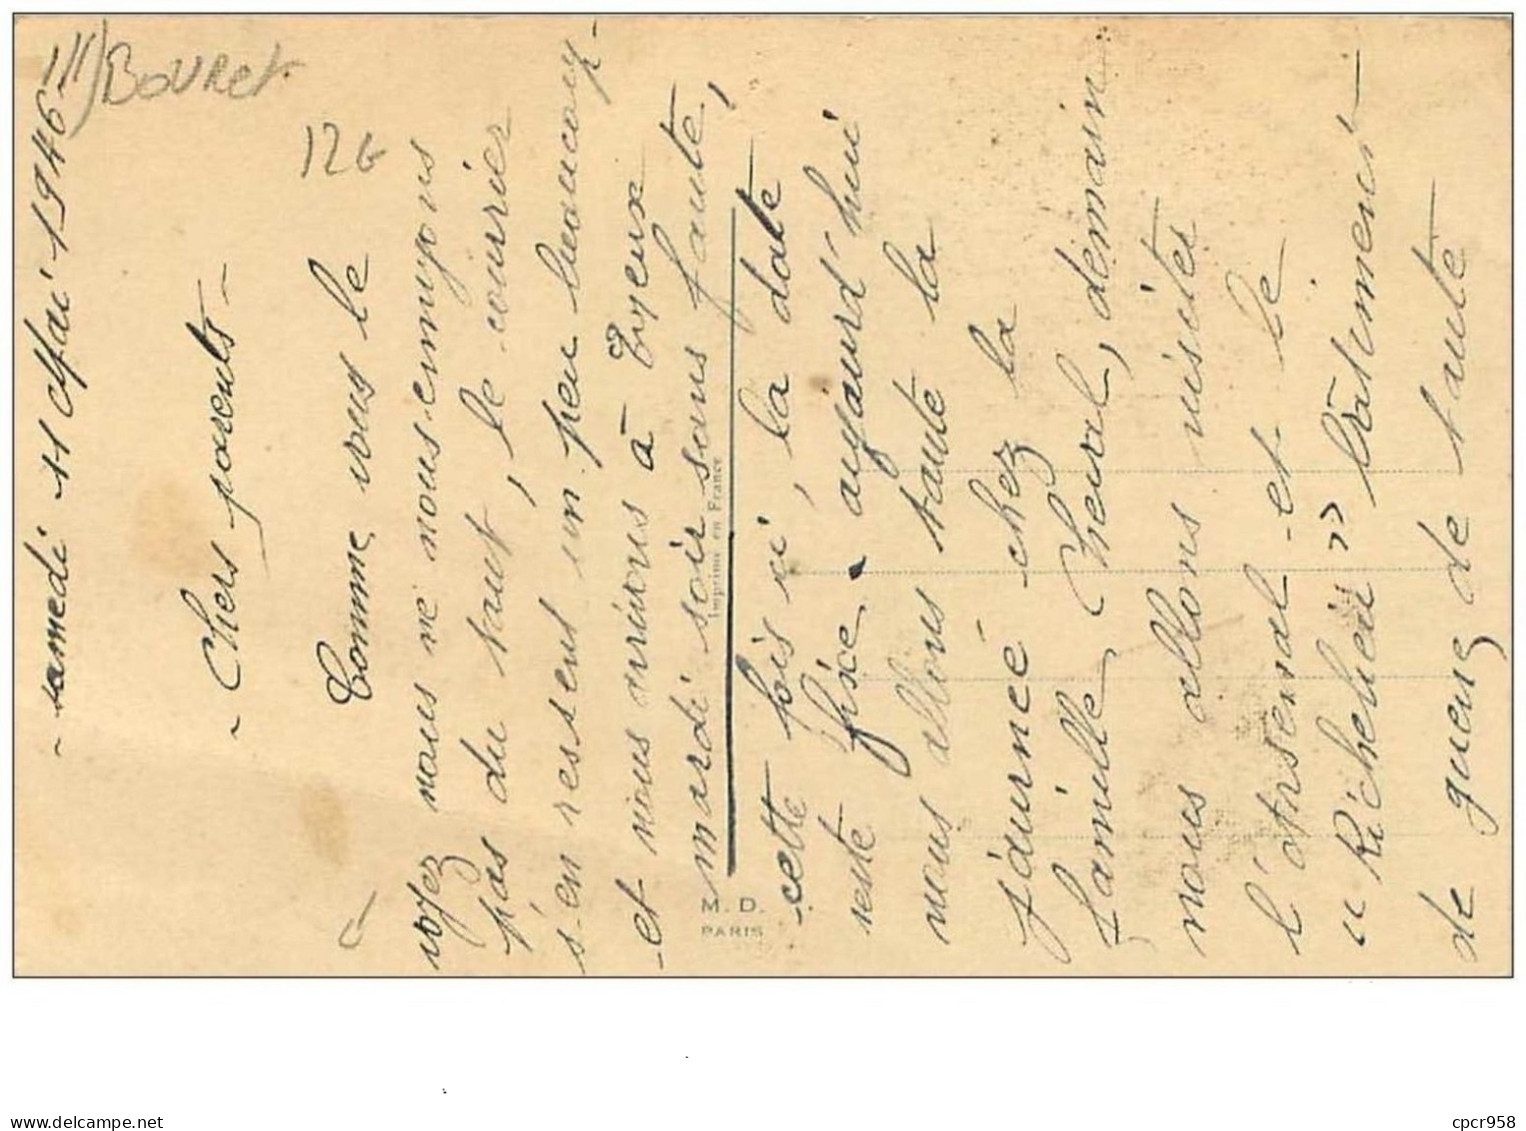 III) BOURet
12G
- samedi 11 Mai 1946 -
- Chers parents -
Comme vous le
voyez nous ne nous ennuyons
pas du tout, le courrier
s'en ressent un peu beaucoup -
et nous arrivons à Evreux
mardi soir sans faute,
cette fois ci, la date
reste fixe, aujourd'hui
nous allons toute la
journée chez la
famille Cheval, demain
nous allons visiter
l'Arsenal et le
" Richelieu " bâtiment -
de guerre de toute
M. D.
PARIS
Imprimé en France
cpcr958